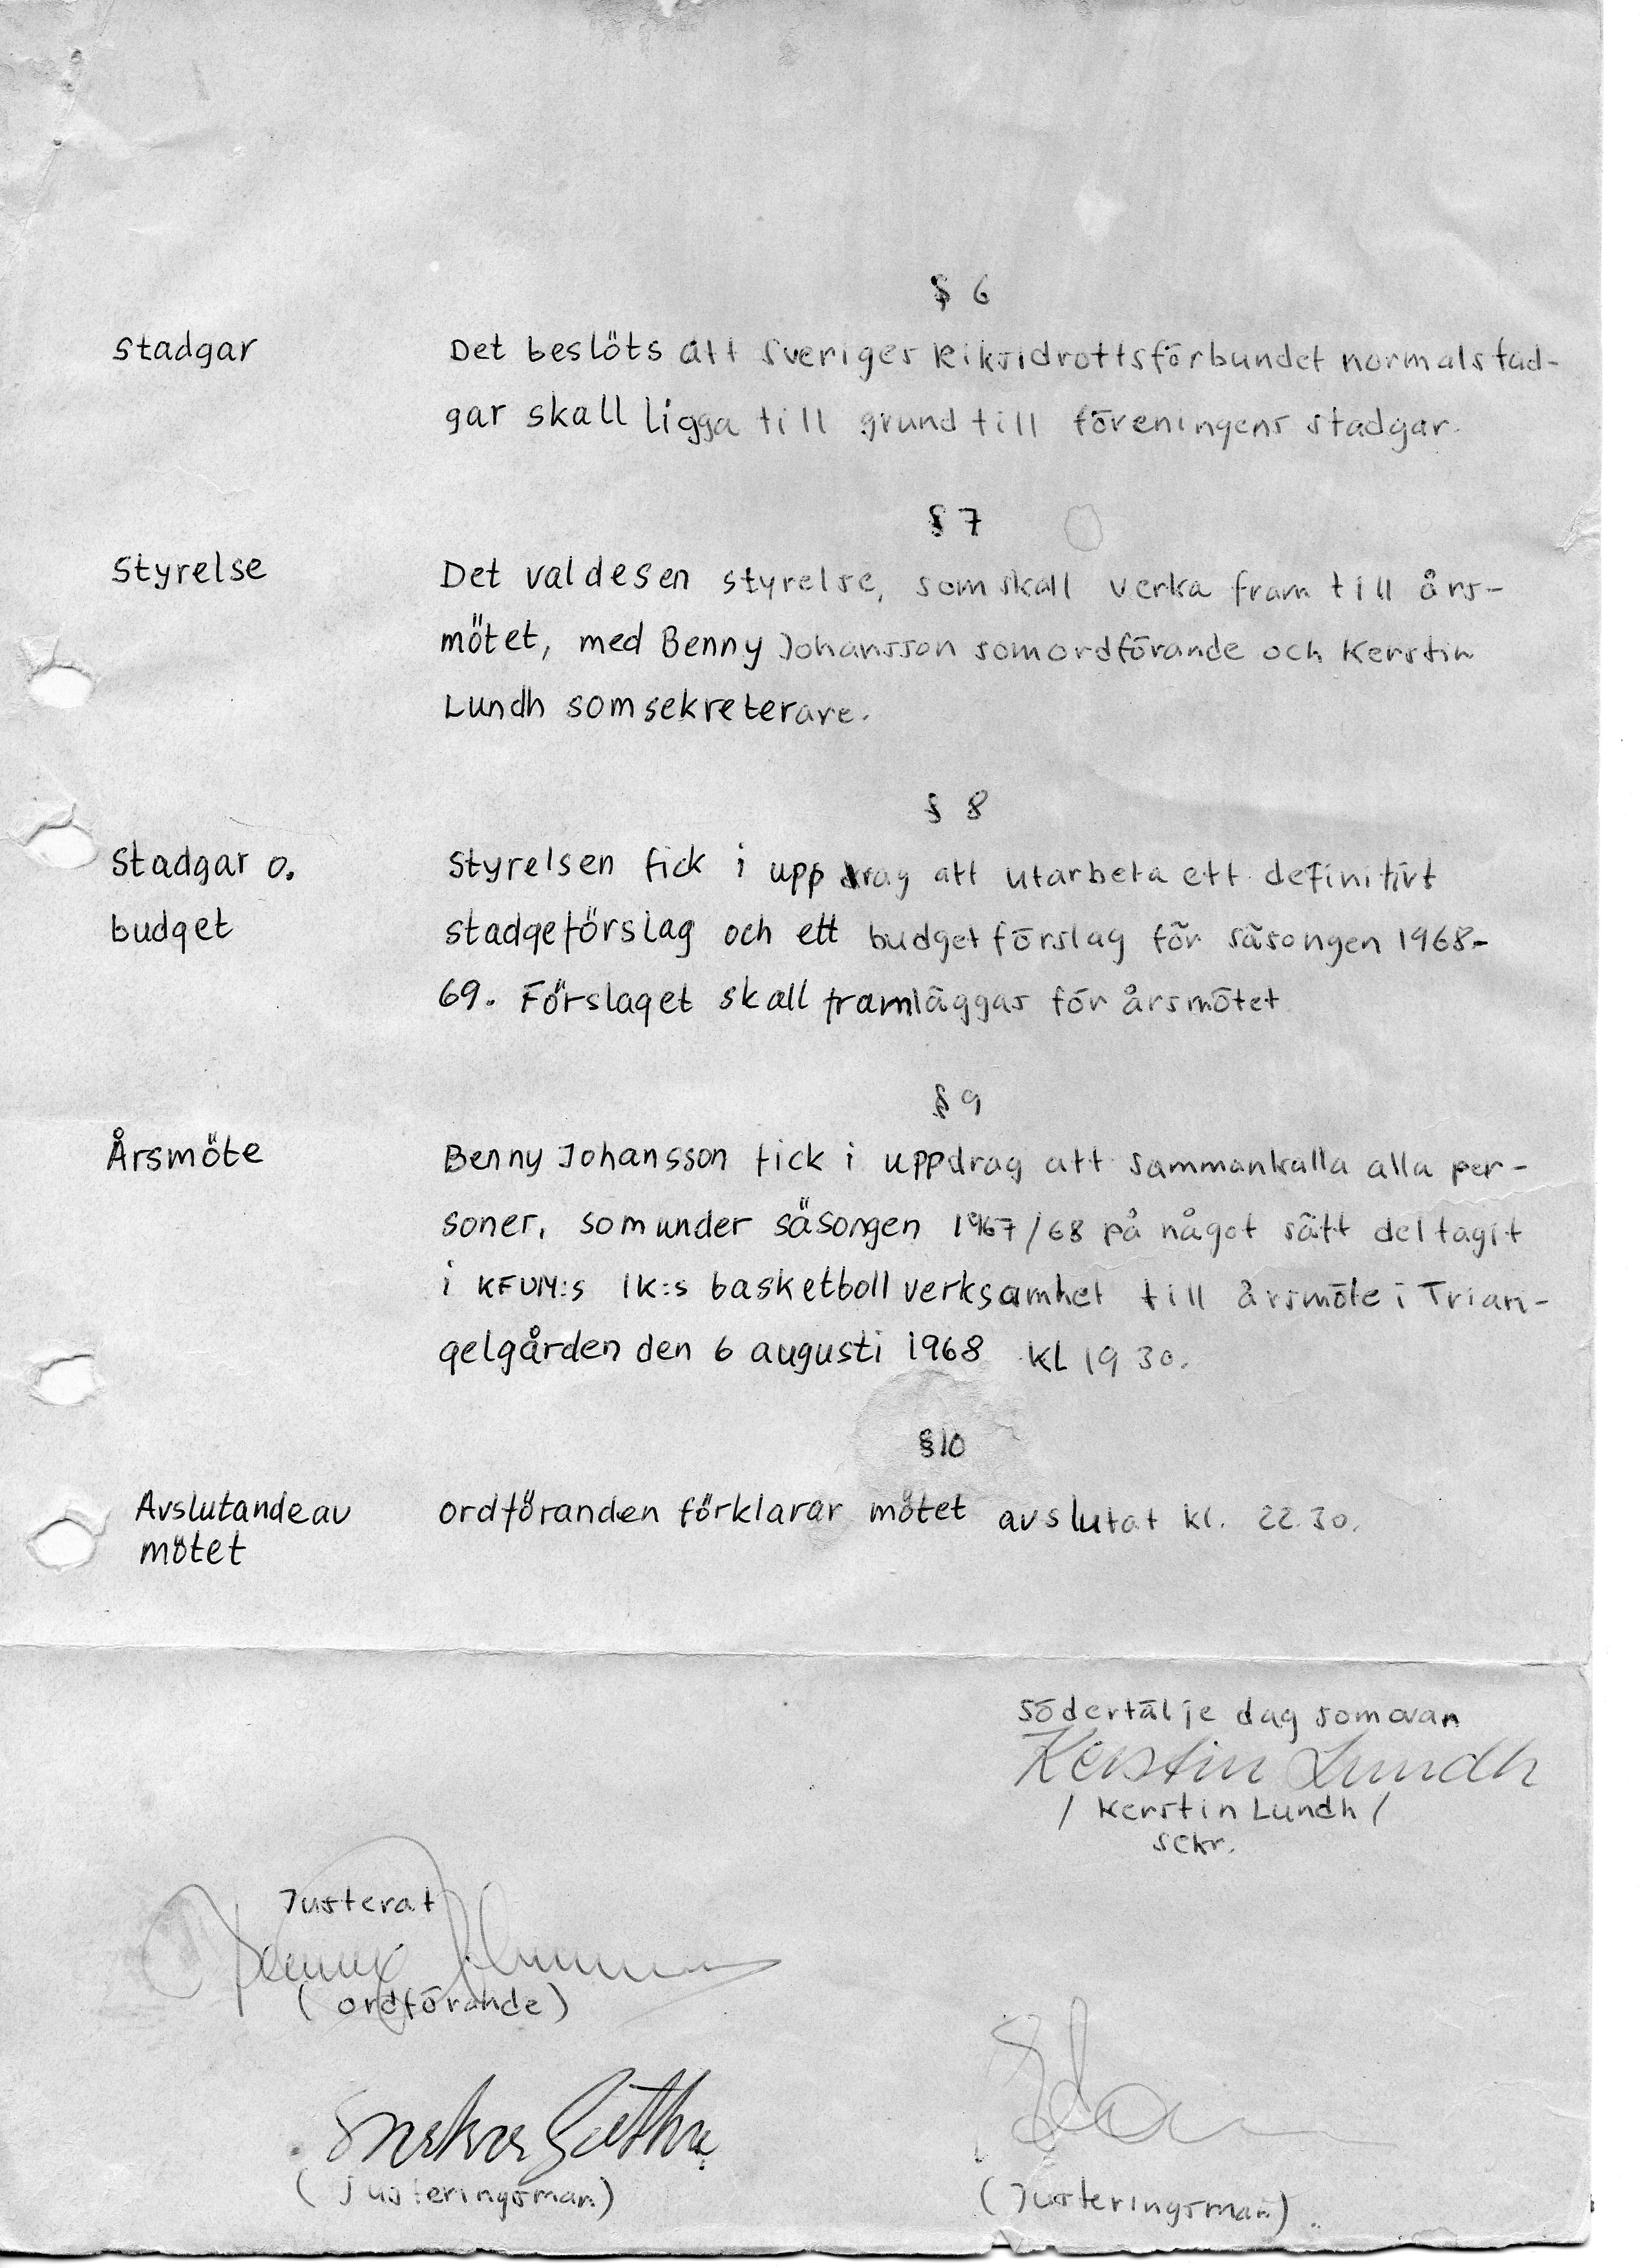 § 6
Stadgar Det beslöts att Sveriges Riksidrottsförbundet normalstad-
gar skall ligga till grund till föreningens stadgar.
§ 7
Styrelse Det valdes en styrelse, som skall verka fram till års-
mötet, med Benny Johansson som ordförande och Kerstin
Lundh som sekreterare.
§ 8
Stadgar o. Styrelsen fick i uppdrag att utarbeta ett definitivt
budget stadgeförslag och ett budgetförslag för säsongen 1968-
69. Förslaget skall framläggas för årsmötet
§ 9
Årsmöte Benny Johansson fick i uppdrag att sammankalla alla per-
soner, som under säsongen 1967/68 på något sätt deltagit
i KFUM:s IK:s basketboll verksamhet till årsmöte i Trian-
gelgården den 6 augusti 1968 kl 19 30.
§ 10
Avslutande av ordföranden förklarar mötet avslutat kl. 22.30.
mötet
Södertälje dag som ovan
Kerstin Lundh
/ Kerstin Lundh /
sekr.
Justerat
Benny Johansson
(ordförande)
(Justeringsman)
(Justeringsman).